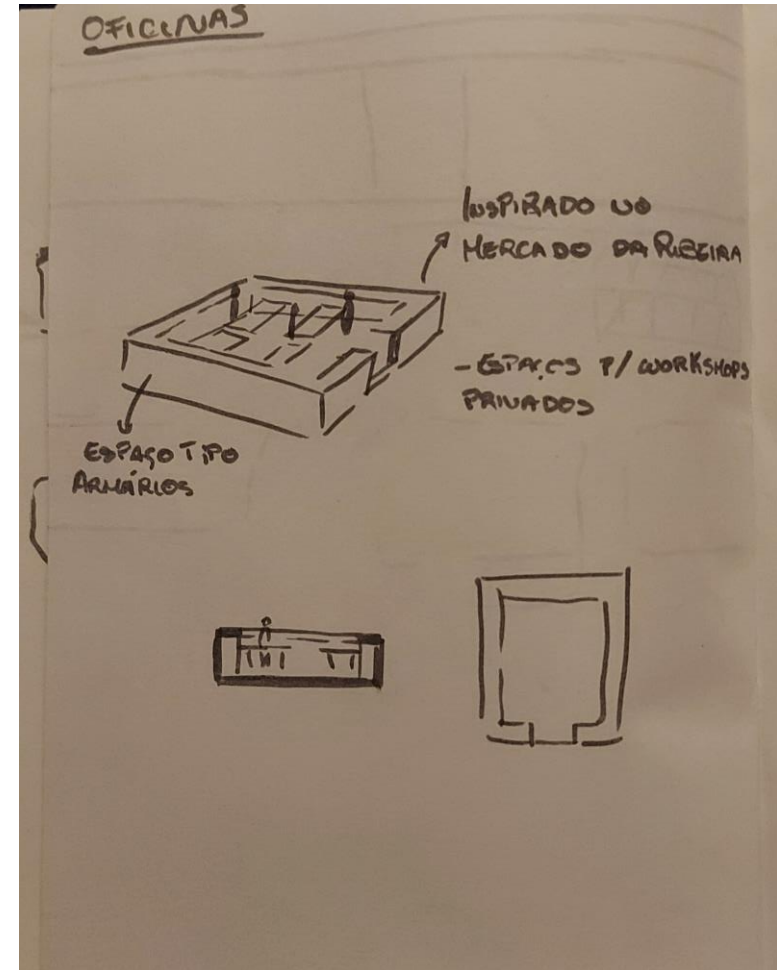 OFICINAS
INSPIRADO NO
MERCADO DA RIBEIRA
- ESPAÇOS P/ WORKSHOPS
PRIVADOS
ESPAÇO TIPO
ARMÁRIOS